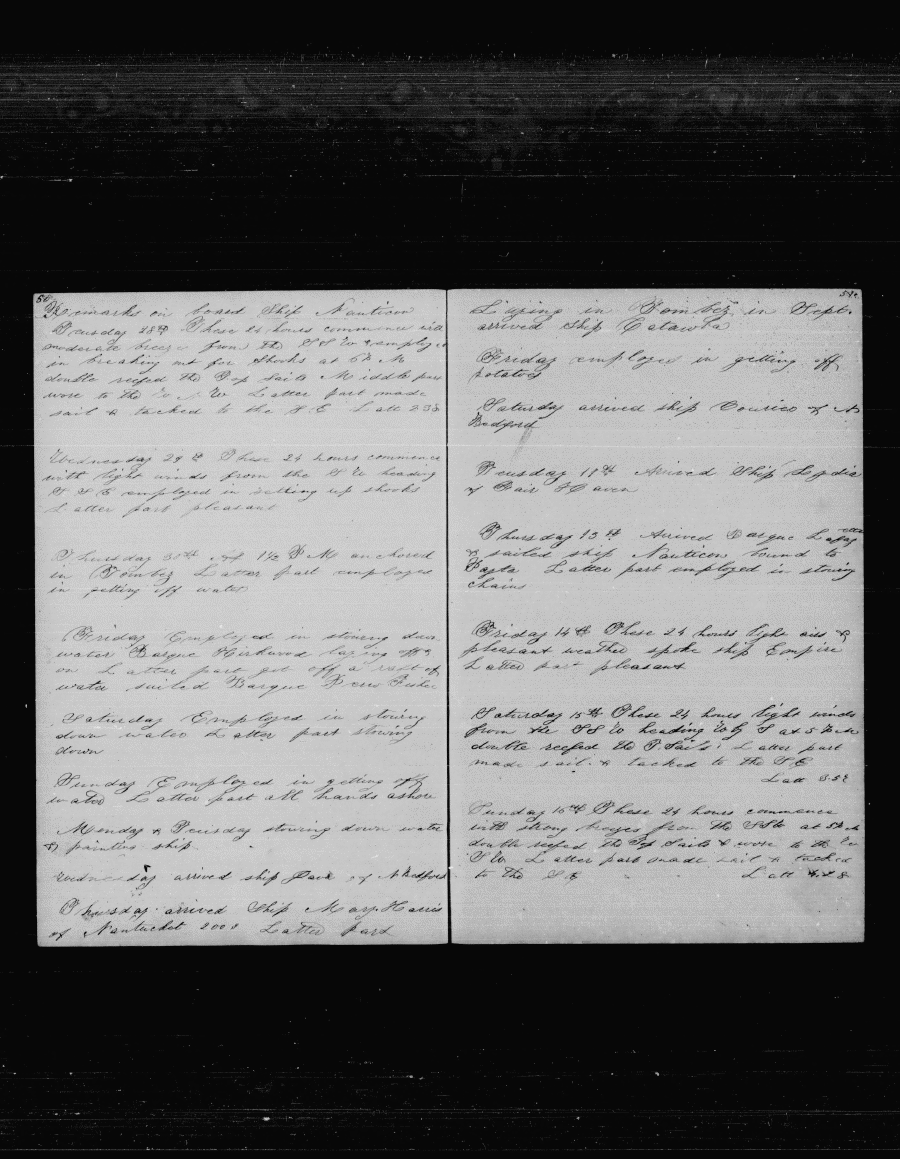 56
Remarks on board Ship Nauticon
Teusday 28th These 24 hours commence with
moderate breeze from the S S W & employed
in breaking out for shooks at 6 P M
double reefed the Top Sails Middle part
wore to the W N W Latter part made
sail & tacked to the S E Latt 2 38
Wednesday 29th These 24 hours commence
with light winds from the S W heading
S S E employed in setting up shooks
Latter part pleasant
Thursday 30th At 1½ P M anchored
in Tombez Latter part employed
in getting off water
Friday Employed in stowing down
water Barque Kirkwood laying off &
on Latter part got off a raft of
water sailed Barque Fisher
Saturday Employed in stowing
down water Latter part stowing
down
Sunday Employed in getting off
water Latter part all hands ashore
Monday & Teusday stowing down water
& painting ship
Wednesday arrived ship of N Bedford
Thursday arrived Ship Mary Harris
of Nantucket 2000 Latter part
57
Laying in Tombez in Sept.
arrived Ship Catawba
Friday employed in getting off
potatoes
Saturday arrived ship Courico of N
Bedford
Teusday 11th Arived Ship Lydia
of Fair Haven
Thursday 13th Arived Barque Lafayette
& sailed ship Nauticon bound to
Payta Latter part employed in stowing
chains
Friday 14th These 24 hours light airs &
pleasant weather spoke ship Empire
Latter part pleasant
Saturday 15th These 24 hours light winds
from the SS W heading W by S at 5 P M
double reefed the T. Sails Latter part
made sail & tacked to the S E
Latt 3.52
Sunday 16th These 24 hours commence
with strong breezes from the SSW at 5 P M
double reefed the Top Sails & wore to the
S W Latter part made sail & tacked
to the S E Latt 4.28